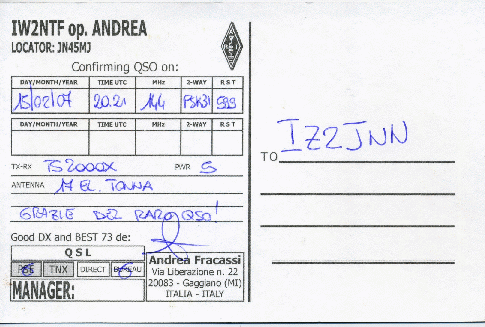 IW2NTF op. ANDREA
LOCATOR: JN45MJ
Confirming QSO on:
DAY/MONTH/YEAR TIME UTC MHz 2-WAY R S T
15/02/07 20.21 144 PSK31 599
DAY/MONTH/YEAR TIME UTC MHz 2-WAY R S T
TX-RX TS2000X PWR 5
ANTENNA 17 EL. TONNA
GRAZIE DEL RARO QSO!
Good DX and BEST 73 de:
QSL
PSE TNX DIRECT BUREAU
MANAGER:
Andrea Fracassi
Via Liberazione n. 22
20083 - Gaggiano (MI)
ITALIA - ITALY
TO IZ2JNN